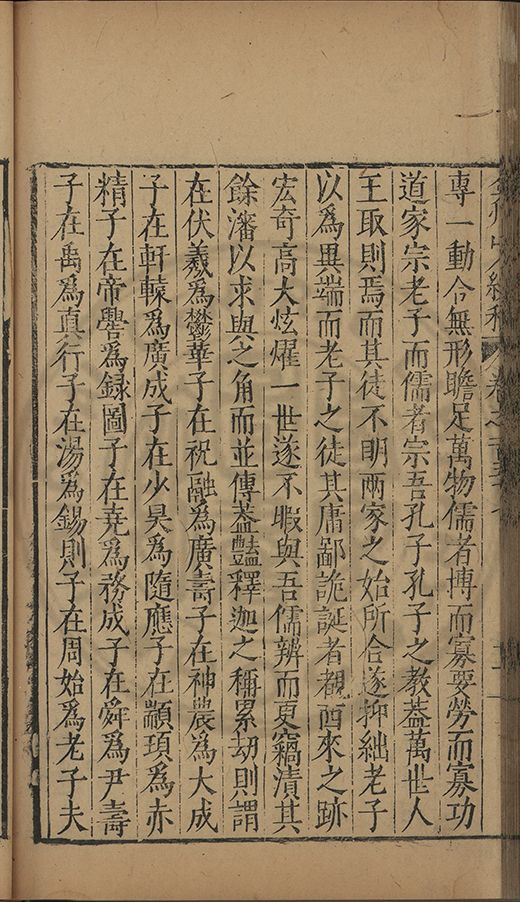 專一動合無形瞻足萬物儒者博而寡要勞而寡功
道家宗老子而儒者宗吾孔子孔子之教葢萬世人
王取則焉而其徒不明兩家之始所合遂抑絀老子
以為異端而老子之徒其庸鄙詭誕者覩西來之跡
宏奇高大炫燿一世遂不暇與吾儒辨而更竊漬其
餘瀋以求與之角而並傳葢豔釋迦之稱累劫則謂
在伏羲為鬱華子在祝融為廣壽子在神農為大成
子在軒轅為廣成子在少昊為隨應子在顓頊為赤
精子在帝嚳為録圖子在堯為務成子在舜為尹壽
子在禹為真行子在湯為錫則子在周始為老子夫